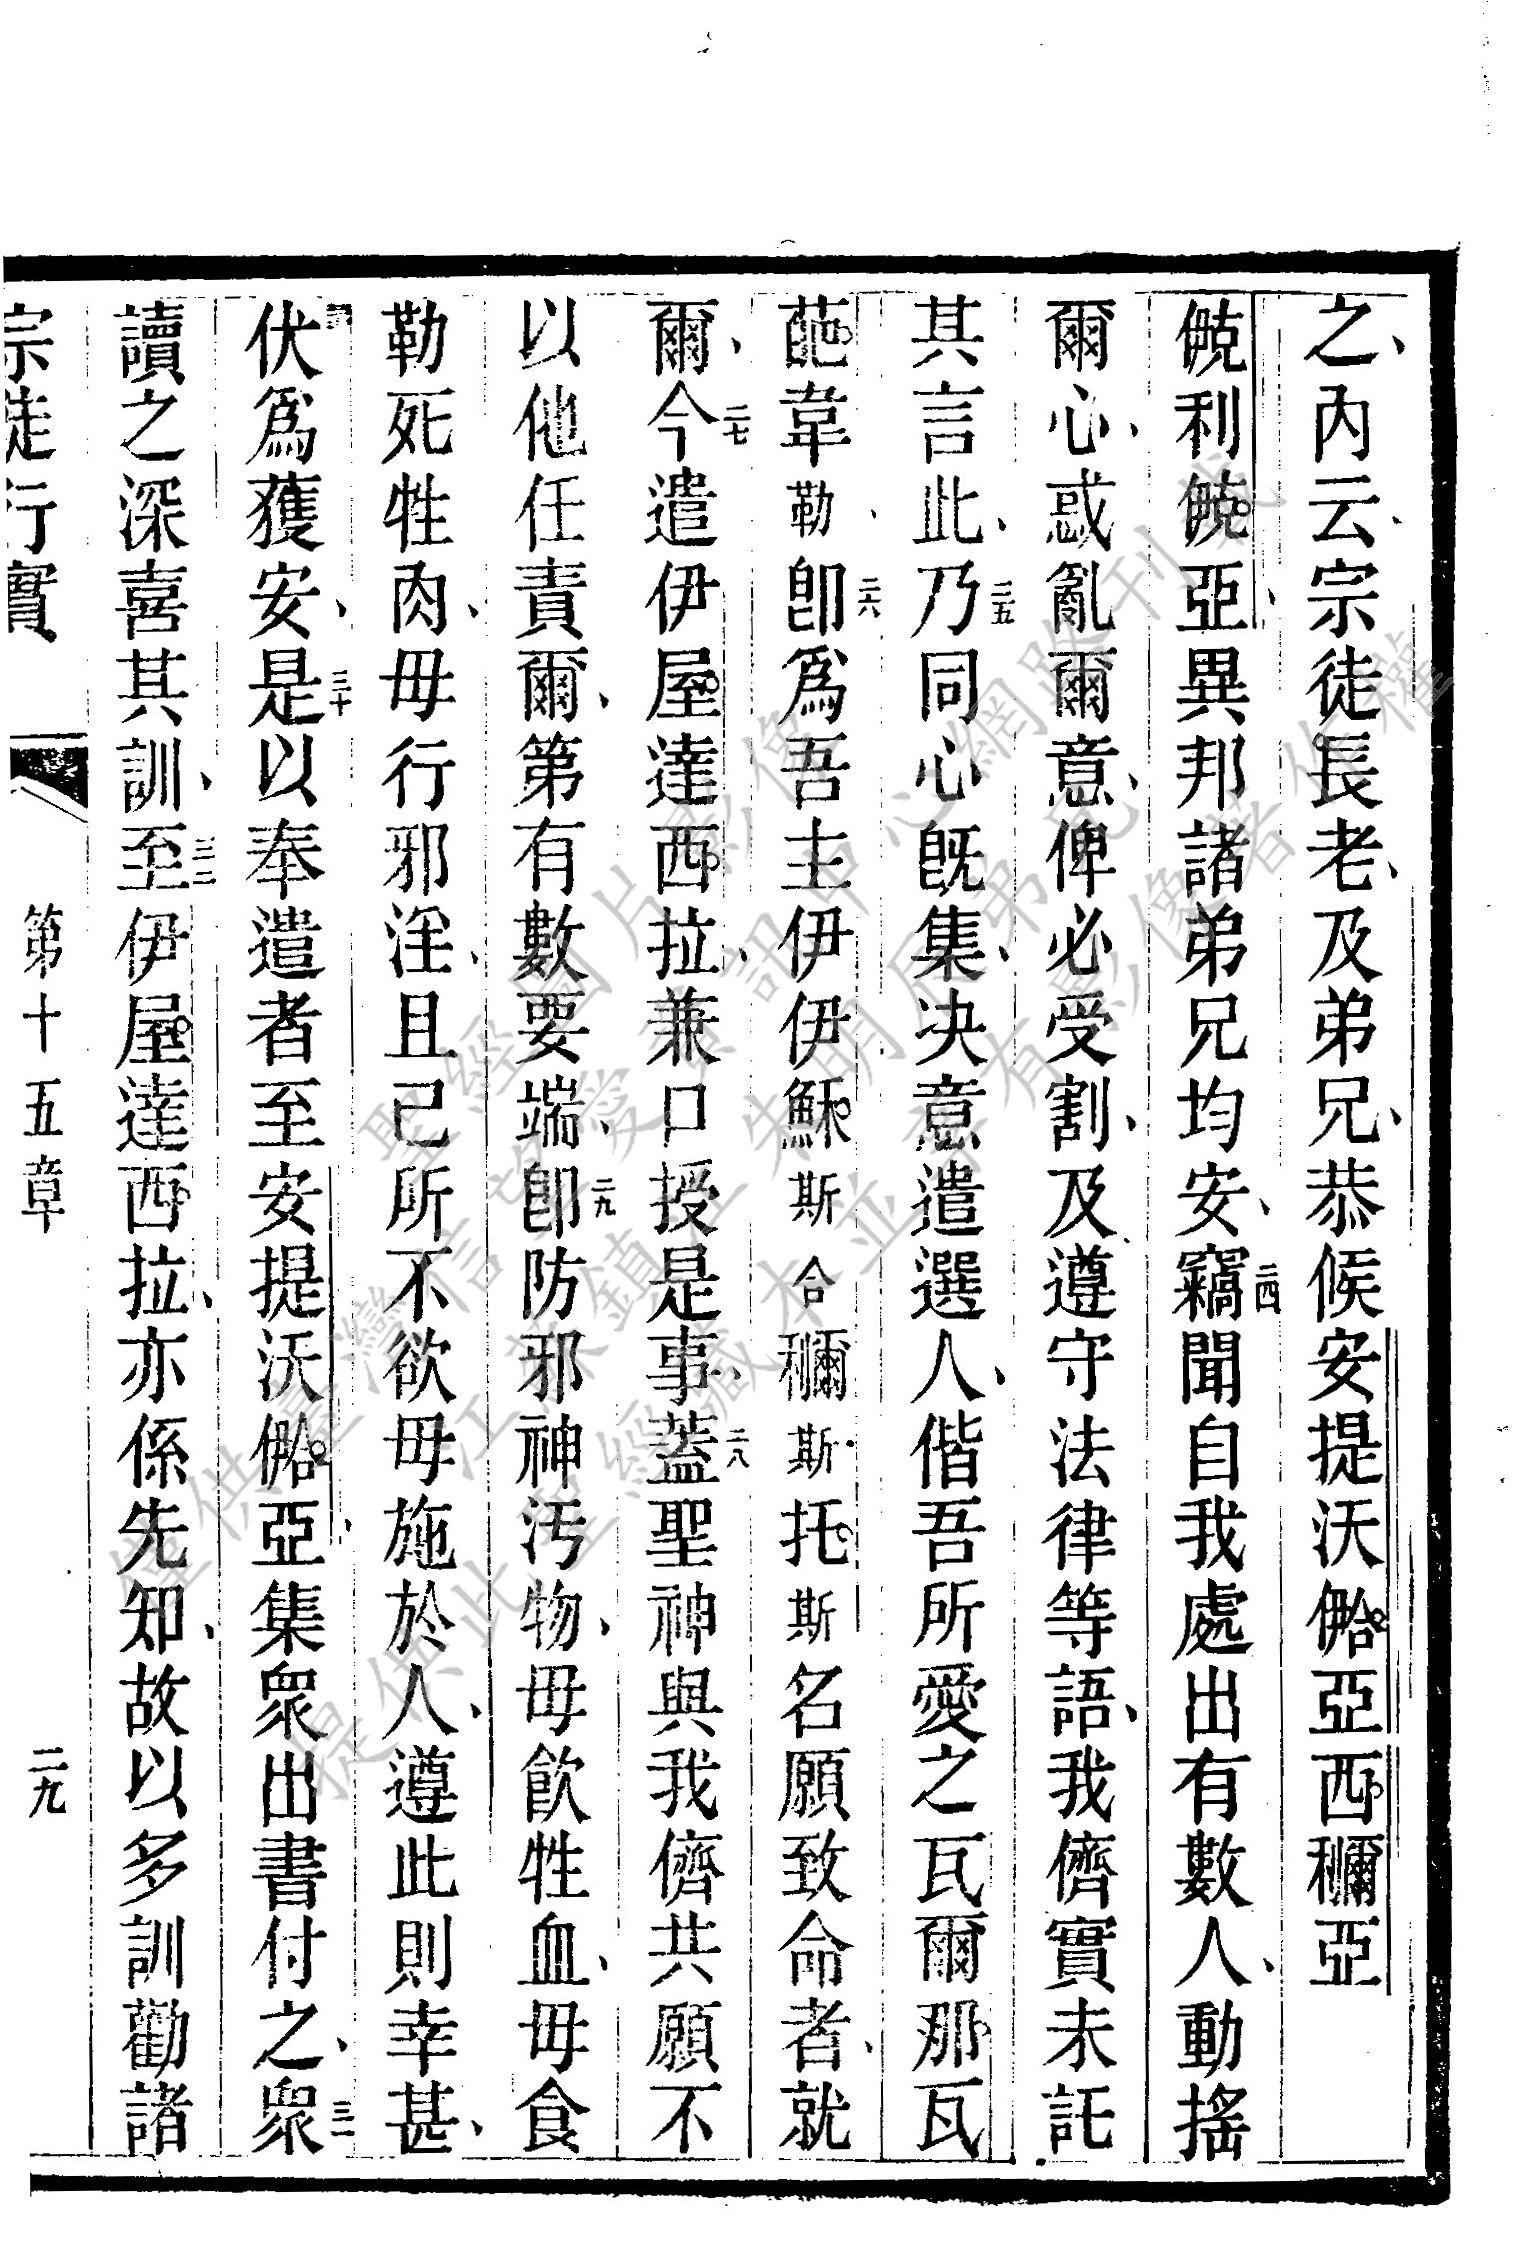 之、內云、宗徒長老、及弟兄、恭候安提沃𠹌亞西穪亞
利亞、異邦諸弟兄均安、二四竊聞自我處出有數人、動搖
爾心、惑亂爾意、俾必受割、及遵守法律等語、我儕實未託
其言此、二五乃同心旣集、决意遣選人、偕吾所愛之瓦爾那瓦
葩韋勒、二六卽爲吾主伊伊穌斯合穪斯托斯名願致命者、就
爾、二七今遣伊屋達西拉、兼口授是事、二八蓋聖神與我儕共願不
以他任責爾、第有數要端、二九卽防邪神汚物、毋飮牲血、毋食
勒死牲肉、毋行邪淫、且己所不欲毋施於人、遵此則幸甚、
伏爲獲安、三十是以奉遣者至安提沃亞、集衆出書付之、三一衆
讀之深喜其訓、三二至伊屋達西拉、亦係先知、故以多訓勸諸
宗徒行實 第十五章 二九
僅供臺灣信望愛資訊中心網路刊載
提供此聖經藏本並有影像著作權